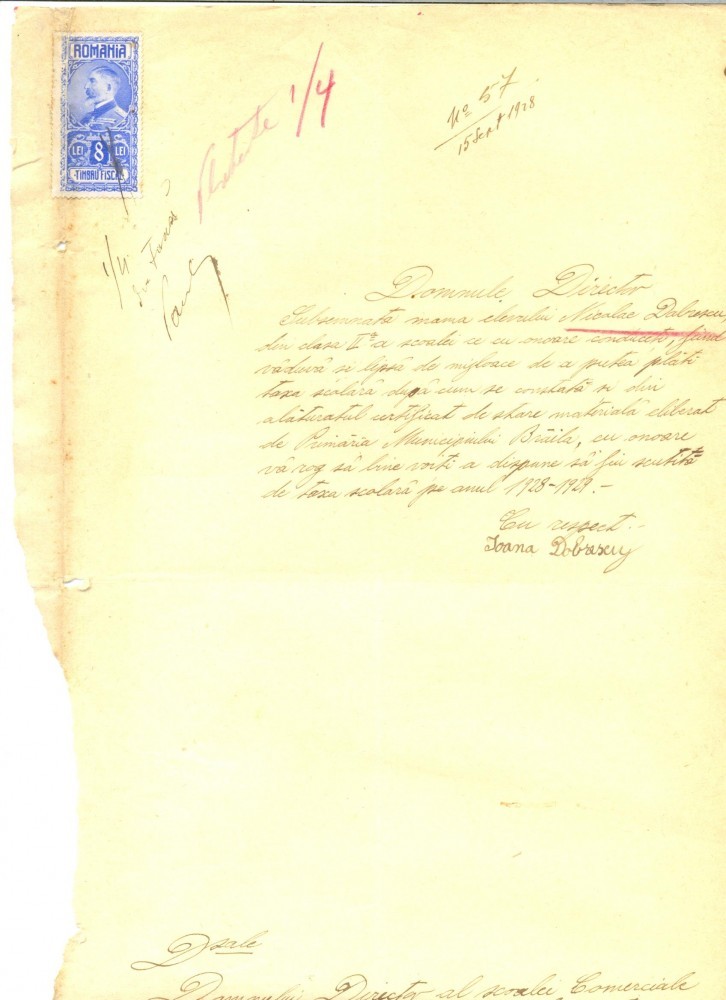 ROMANIA
LEI 8 LEI
TIMBRU FISCAL
1/4
No 57
15 Sept 1928
1/4
din taxă
Domnule Director
Subsemnata mama elevului Nicolae Dobrescu,
din clasa II-a a scoalei ce cu onoare conduceti, fiind
văduvă si lipsă de mijloace de a putea plăti
taxa scolară după cum se constată si din
alăturatul certificat de stare materială eliberat
de Primăria Municipiului Brăila, cu onoare
vă rog să bine voiti a dispune să fiu scutită
de taxa scolară pe anul 1928-1929.-
Cu respect.-
Ioana Dobrescu
Dsale
Domnului Director al scoalei Comerciale